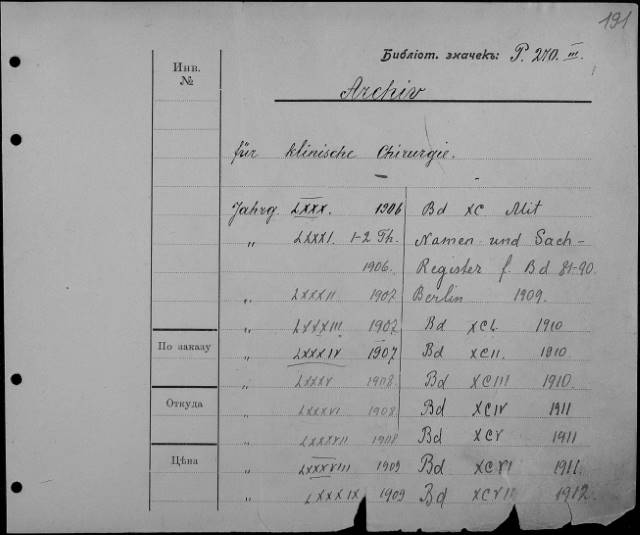 191
Библіот. значекъ: P. 270. III.
Инв.
№
Archiv
für klinische Chirurgie.
Jahrg. LXXX. 1906 Bd XC Mit
„ LXXXI. 1-2 Th. Namen und Sach-
1906. Register f. Bd 81-90.
„ LXXXII 1907 Berlin 1909.
„ LXXXIII 1907 Bd XCI. 1910
По заказу „ LXXXIV 1907 Bd XCII. 1910
„ LXXXV 1908. Bd XCIII 1910.
Откуда „ LXXXVI 1908. Bd XCIV 1911
„ LXXXVII 1908 Bd XCV 1911
Цѣна „ LXXXVIII 1909 Bd XCVI 1911.
„ LXXXIX 1909 Bd XCVII 1912.